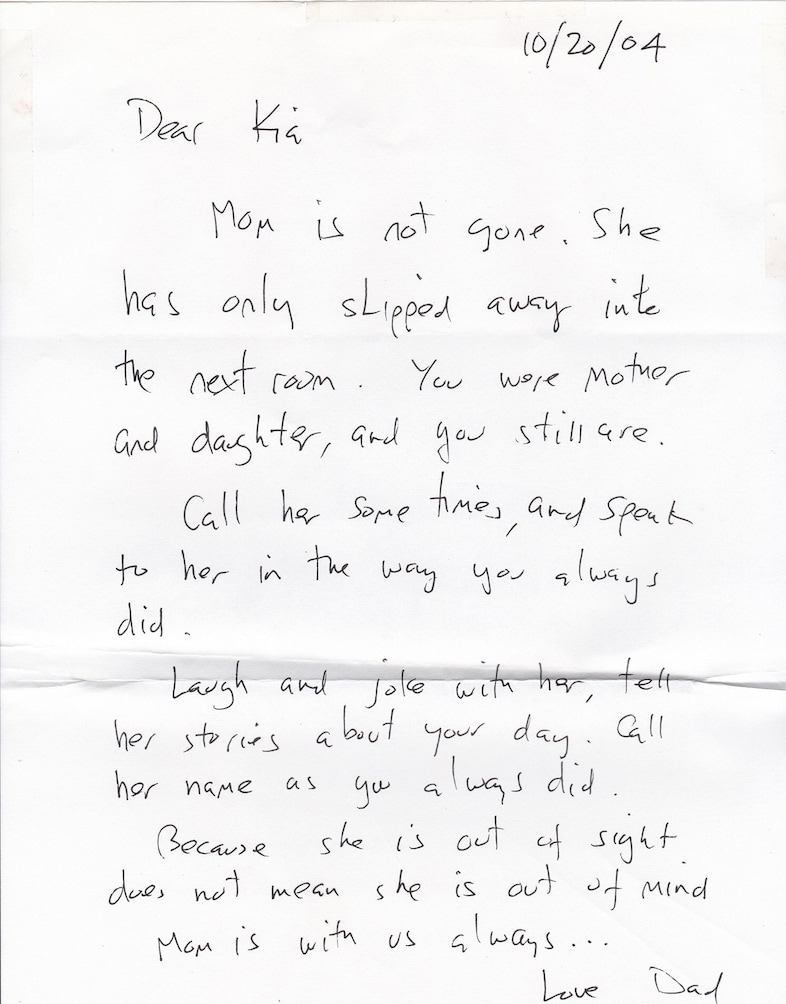 10/20/04
Dear Kia
Mom is not gone. She
has only slipped away into
the next room. You were Mother
and daughter, and you still are.
Call her some times, and speak
to her in the way you always
did.
Laugh and joke with her, tell
her stories about your day. Call
her name as you always did.
Because she is out of sight
does not mean she is out of mind
Mom is with us always...
Love Dad